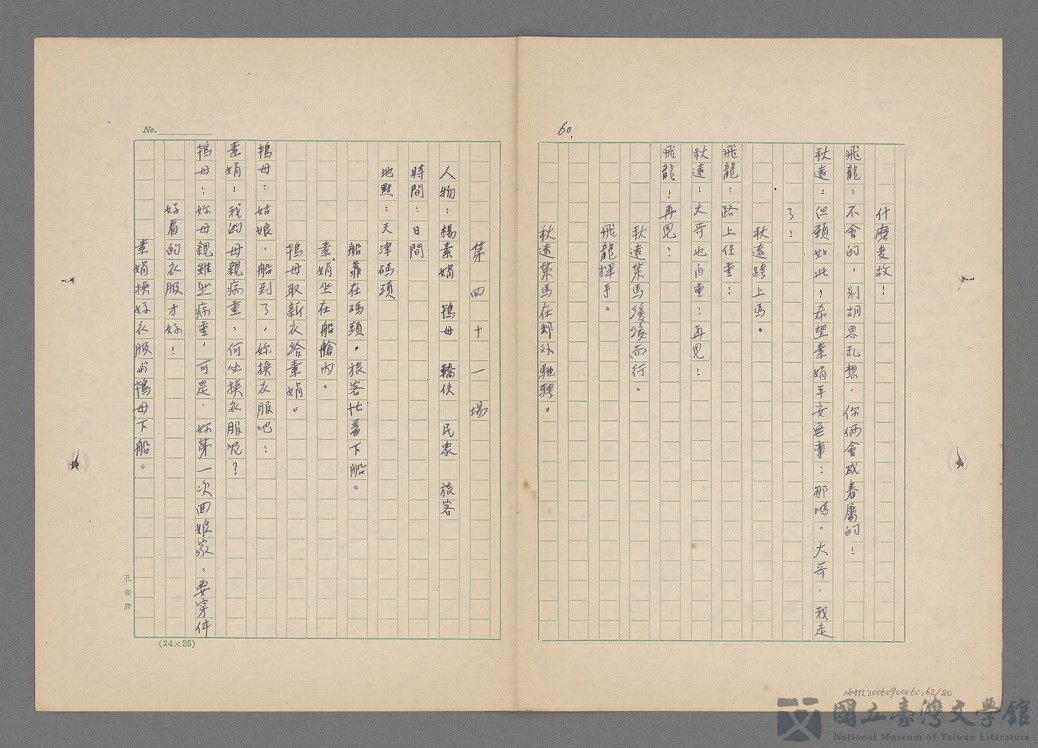 60.
什麼变故！
飛龍：不會的，別胡思乱想，你倆會成眷屬的！
秋遠：但願如此！希望素娟平安無事：那嗎，大哥，我走
了！
秋遠跨上馬。
飛龍：路上保重！
秋遠：大哥也自重！再見！
飛龍！再見！
秋遠策馬緩緩而行。
飛龍揮手。
秋遠策馬在郊外馳騁。
No.
第四十一場
人物：楊素娟　鴇母　轎伕　民眾　旅客
時間：日間
地點：天津碼頭
船靠在碼頭。旅客忙著下船。
素娟坐在船艙內。
鴇母取新衣給素娟。
鴇母：姑娘，船到了，妳換衣服吧！
素娟：我的母親病重，何必換衣服呢？
鴇母：妳母親雖然病重，可是，妳第一次回娘家，要穿件
好看的衣服才好！
素娟換好衣服与鴇母下船。
孔雀牌
(24×25)
NMTL20060900060,62/80
國立臺灣文學館
National Museum of Taiwan Literature